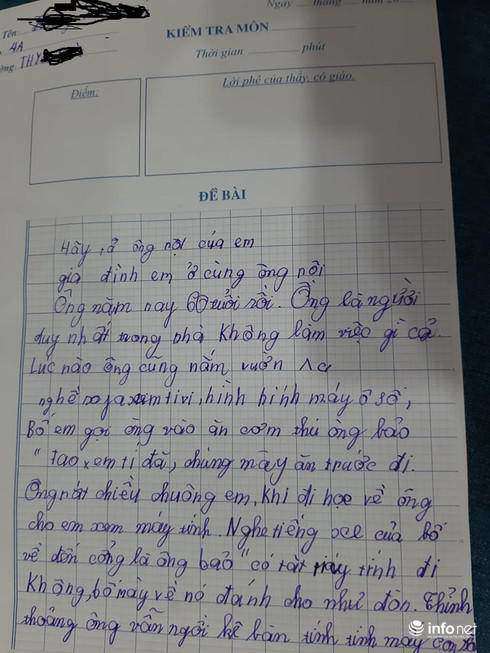 Ngày ... tháng ... năm 20
Tên
4A
KIỂM TRA MÔN
Thời gian phút
Điểm:
Lời phê của thầy, cô giáo.
ĐỀ BÀI
Hãy tả ông nội của em
gia đình em ở cùng ông nội
Ông năm nay 60 tuổi rồi. Ông là người
duy nhất trong nhà không làm việc gì cả.
Lúc nào ông cũng nằm vườn
xem tivi, hình hình máy ô số,
Bố em gọi ông vào ăn cơm thì ông bảo
"Tao xem tí đã, chúng mày ăn trước đi.
Ông rất chiều chuộng em, khi đi học về ông
cho em xem máy tính. Nghe tiếng xe của bố
về đến cổng là ông bảo "có tắt máy tính đi
không, bố mày về nó đánh cho như đòn. Thỉnh
thoảng ông vẫn ngồi kê bàn tính tính máy con
infonet